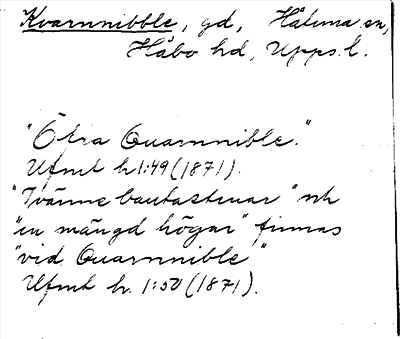 Kvarnnibble, gd, Håtuna sn,
Håbo hd, Upps. l.
"Öfra Quarnnible."
Ufmt h 1:49 (1871).
"Tvänne bautastenar" och
"en mängd högar" finnas
"vid Quarnnible"
Ufmt h. 1:50 (1871).